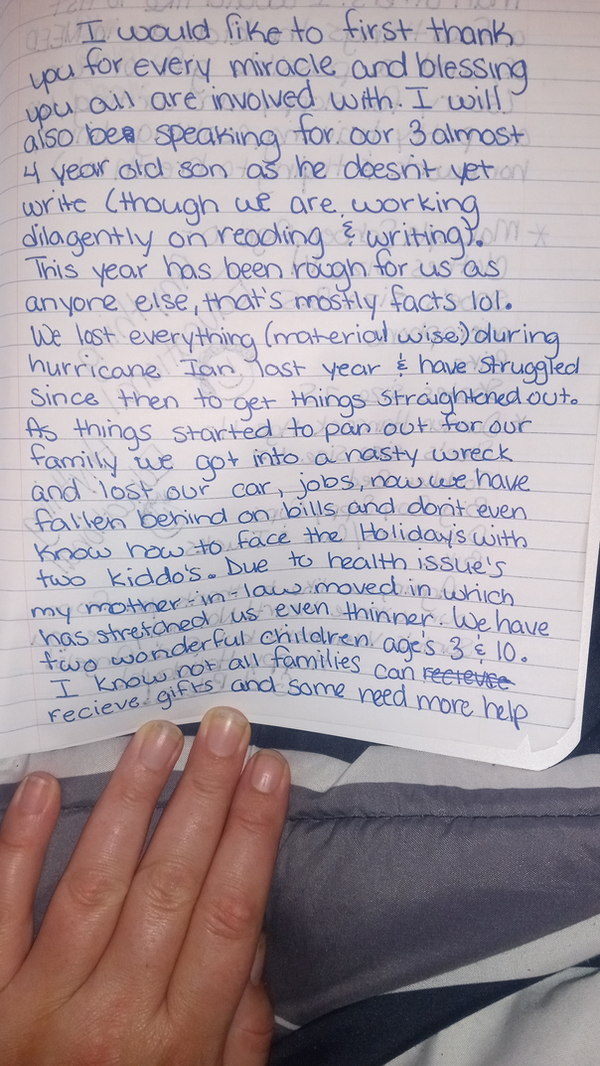 I would like to first thank
you for every miracle and blessing
you all are involved with. I will
also be speaking for our 3 almost
4 year old son as he doesn't yet
write (though we are working
dilagently on reading & writing).
This year has been rough for us as
anyone else, that's mostly facts lol.
We lost everything (material wise) during
hurricane Ian last year & have struggled
since then to get things straightened out.
As things started to pan out for our
familiy we got into a nasty wreck
and lost our car, jobs, now we have
fallen behind on bills and don't even
know how to face the Holiday's with
two kiddo's. Due to health issue's
my mother-in-law moved in which
has stretched us even thinner. We have
two wonderful children age's 3 & 10.
I know not all families can recieve
recieve gifts and some need more help